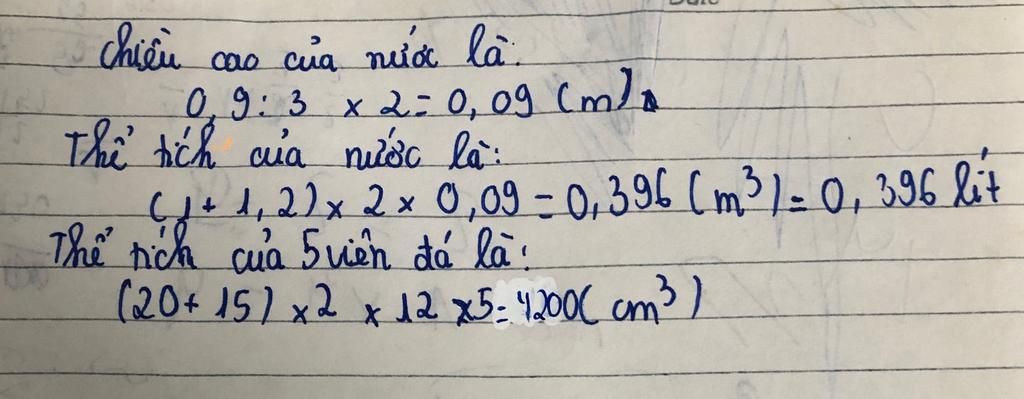 Chiều cao của nước là:
0,9 : 3 x 2 = 0,09 (m)
Thể tích của nước là:
(1 + 1,2) x 2 x 0,09 = 0,396 (m³) = 0,396 lít
Thể tích của 5 viên đá là:
(20 + 15) x 2 x 12 x 5 = 4200 (cm³)